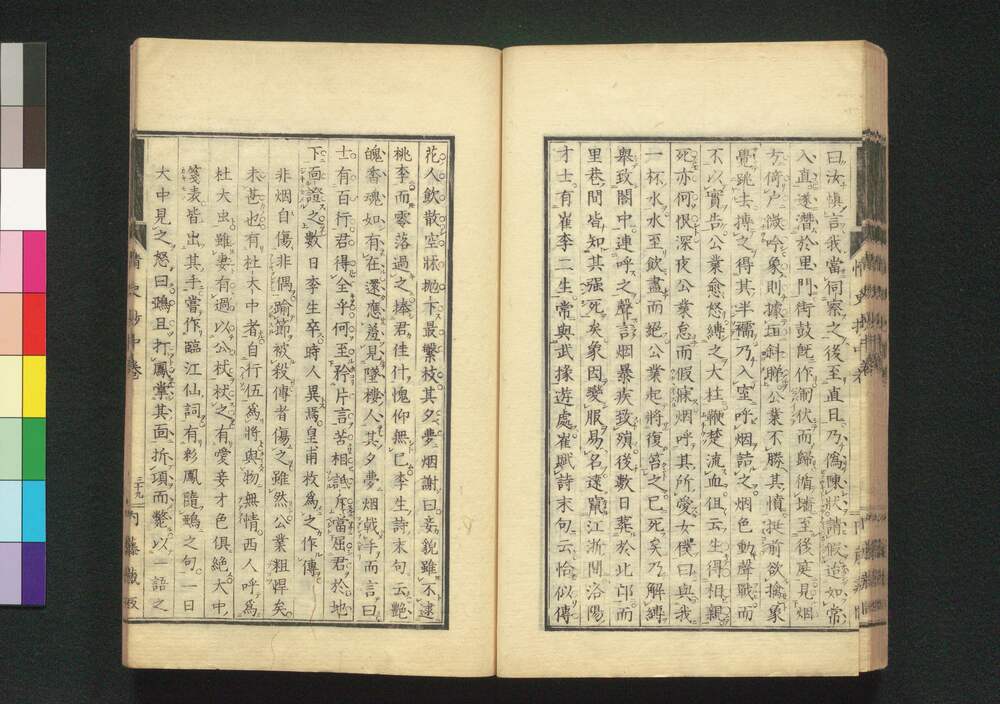 曰汝愼言我當伺察之後至直日乃僞陳狀請假迨如常
入直遂潛於里門街鼓既作匍伏而歸循墻至後庭見烟
方倚户微吟象則據垣斜睇公業不勝其憤挺前欲擒象
覺跳去搏之得其半襦乃入室呼烟詰之烟色動聲戰而
不以實告公業愈怒縛之大柱鞭楚流血但云生得相親
死亦何恨深夜公業怠而假寐烟呼其所愛女僕曰與我
一杯水水至飲盡而絕公業起將復笞之已死矣乃解縛
舉致閣中連呼之聲言烟暴疾致殞後數日葬於北邙而
里巷間皆知其强死矣象因變服易名遠竄江浙間洛陽
才士有崔李二生常與武掾遊處崔賦詩末句云恰似傳
花人飲散空牀抛下最繁枝其夕夢烟謝曰妾貌雖不逮
桃李而零落過之捧君佳什愧仰無已李生詩末句云艷
魄香魂如有在還應羞見墜樓人其夕夢烟戟手而言曰
士有百行君得全乎何至矜片言苦相詆斥當屈君於地
下面證之數日李生卒時人異焉皇甫枚爲之作傳
非烟自傷非偶踰節被殺傳者傷之雖然公業粗悍矣
未甚也有杜大中者自行伍爲將與物無情西人呼爲
杜大虫雖妻有過以公杖杖之有愛妾才色俱絕大中
箋表皆出其手嘗作臨江仙詞有彩鳳隨鴉之句一日
大中見之怒曰鴉且打鳳掌其面折項而斃以一語之
情史抄中卷
三十九